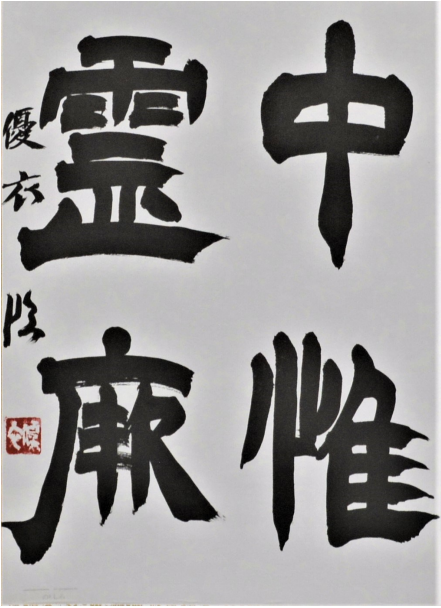 中惟
霊厥
優衣臨